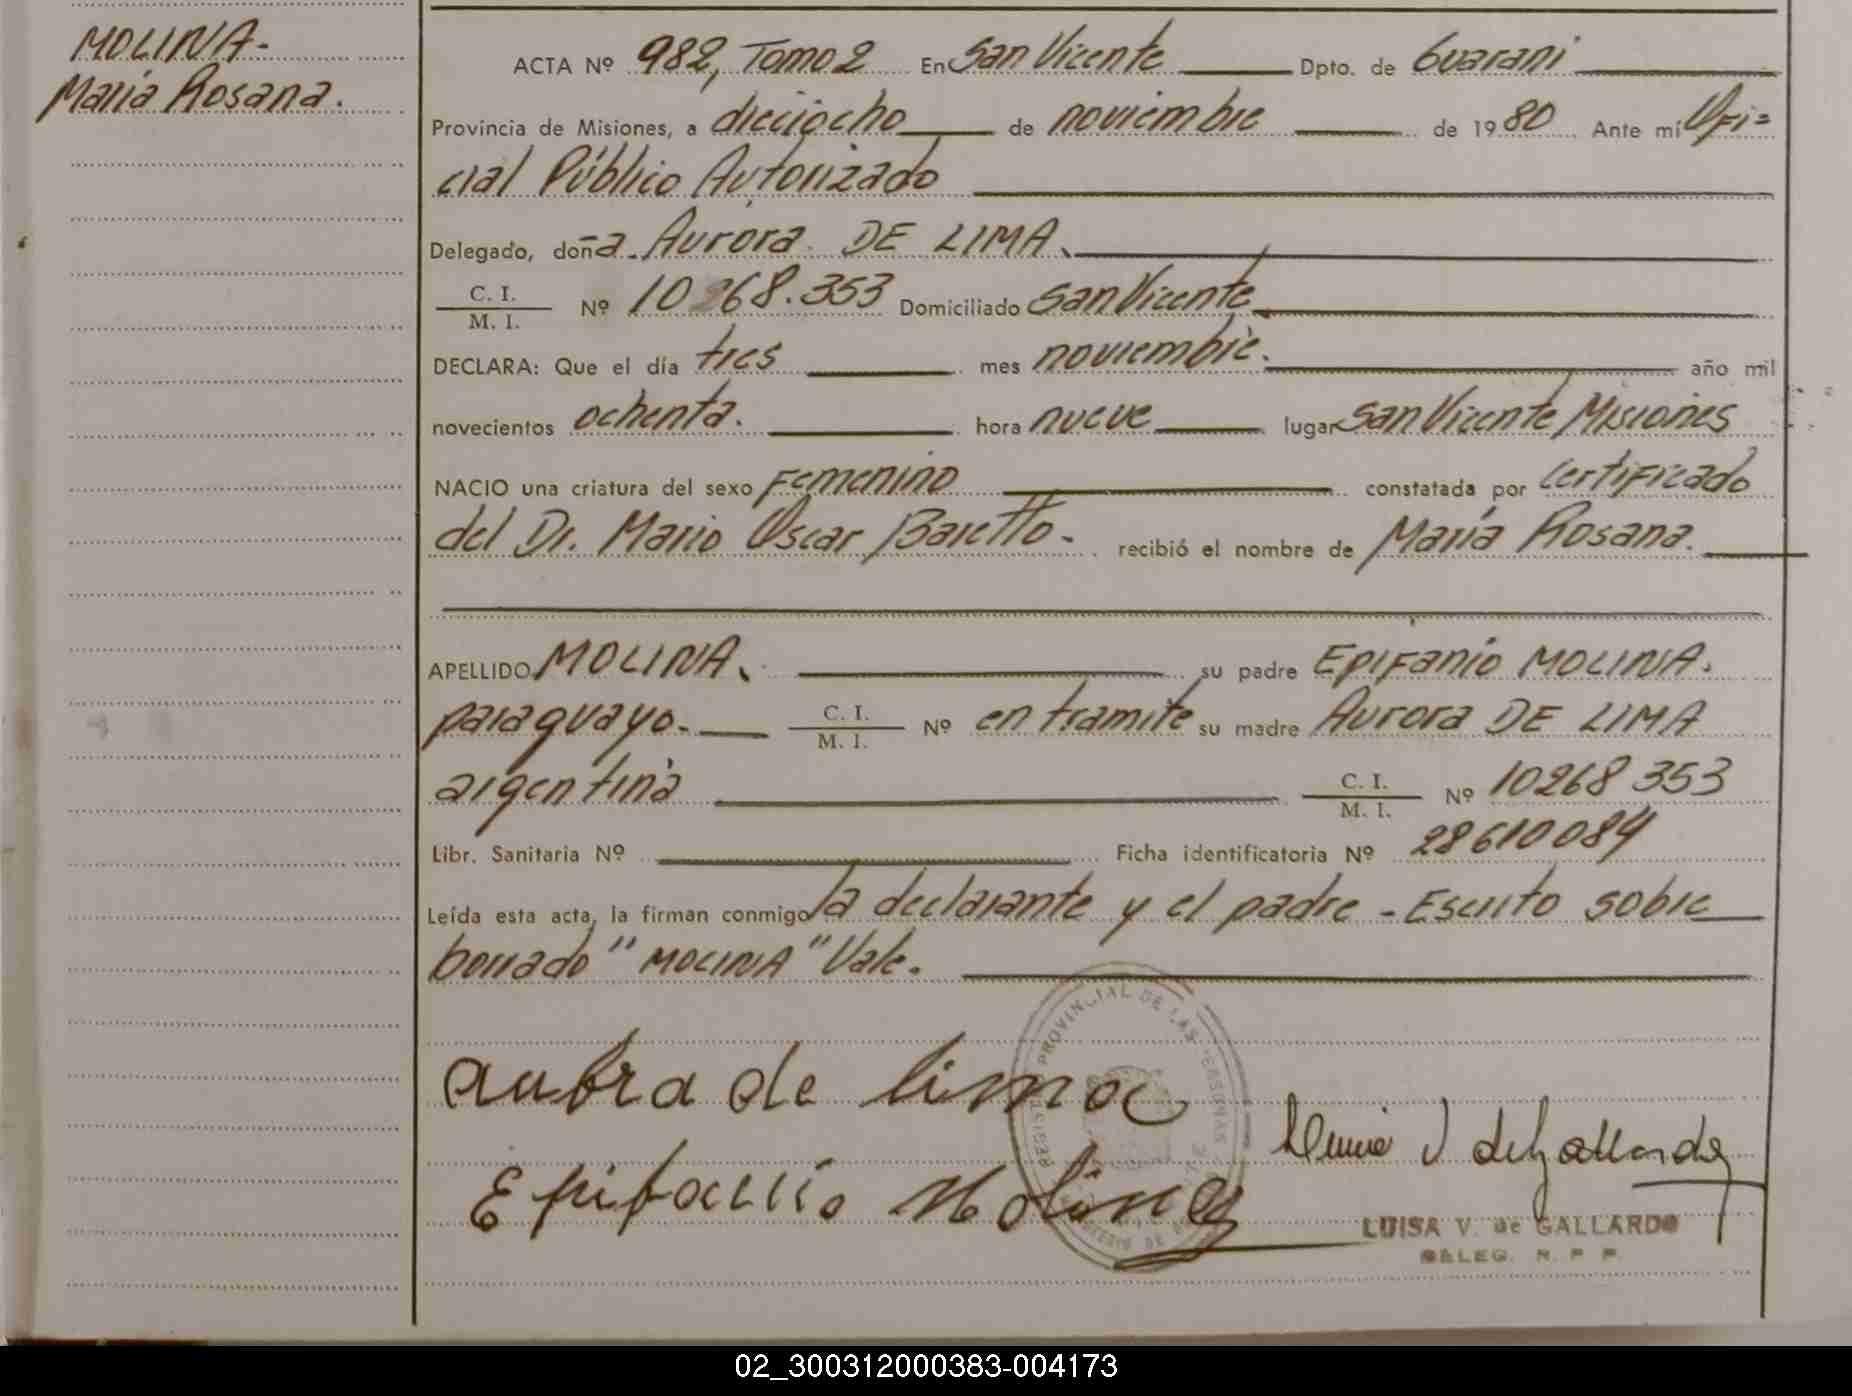 MOLINA-
María Rosana.
ACTA Nº 982, Tomo 2 En San Vicente Dpto. de Guaraní
Provincia de Misiones, a dieciocho de noviembre de 1980 Ante mí Ofi=
cial Público Autorizado
Delegado, doña Aurora DE LIMA.
C. I.
M. I.
Nº 10268.353 Domiciliado San Vicente
DECLARA: Que el día tres mes noviembre. año mil
novecientos ochenta. hora nueve lugar San Vicente, Misiones
NACIO una criatura del sexo Femenino constatada por certificado
del Dr. Mario Oscar Baretto- recibió el nombre de María Rosana.
APELLIDO MOLINA. su padre Epifanio MOLINA.
paraguayo. C. I. M. I. Nº en tramite su madre Aurora DE LIMA
argentina C. I. M. I. Nº 10268353
Libr. Sanitaria Nº Ficha identificatoria Nº 28610084
Leída esta acta, la firman conmigo la declarante y el padre - Escrito sobre
borrado "MOLINA" Vale.
REGISTRO PROVINCIAL DE LAS PERSONAS
Epifanio Molina
LUISA V. de GALLARDO
DELEG. R. P. P.
02_300312000383-004173